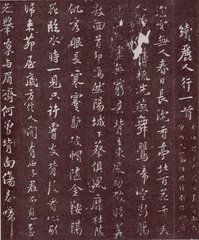 續麗人行一首
深宮無人春日長沉香亭北百花香美
人睡起薄梳洗燕舞鶯啼空斷腸畫
工欲畫無窮意背立東風初破睡若
教回首却嫣然陽城下蔡俱風靡杜陵
飢客眼長寒蹇驢破帽隨金鞍隔
花臨水時一見只許腰肢背後看心醉
歸來茅屋底方信人間有西子君不見孟
光舉案與眉齊何曾背面傷春啼